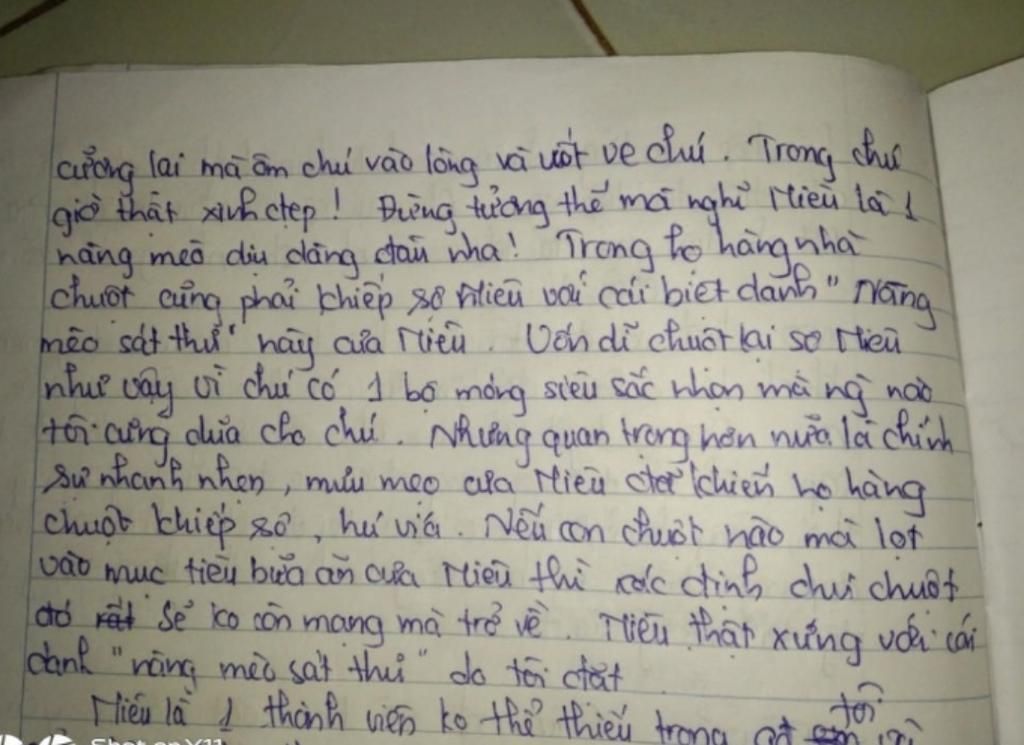 cưỡng lại mà ôm chú vào lòng và vuốt ve chú. Trong chú
giờ thật xinh đẹp! Đừng tưởng thế mà nghĩ Miêu là 1
nàng mèo dịu dàng đâu nha! Trong họ hàng nhà
chuột cũng phải khiếp sợ Miêu với cái biệt danh "Nàng
mèo sát thủ" này của Miêu. Vốn dĩ chuột lại sợ Miêu
như vậy vì chú có 1 bộ móng siêu sắc nhọn mà ng nào
tôi cũng dũa cho chú. Nhưng quan trọng hơn nữa là chính
sự nhanh nhẹn, mưu mẹo của Miêu để khiến họ hàng
chuột khiếp sợ, hú vía. Nếu con chuột nào mà lọt
vào mục tiêu bữa ăn của Miêu thì xác định chú chuột
đó sẽ ko còn mạng mà trở về. Miêu thật xứng với cái
danh "nàng mèo sát thủ" do tôi đặt
Miêu là 1 thành viên ko thể thiếu trong tôi
Shot on Y11